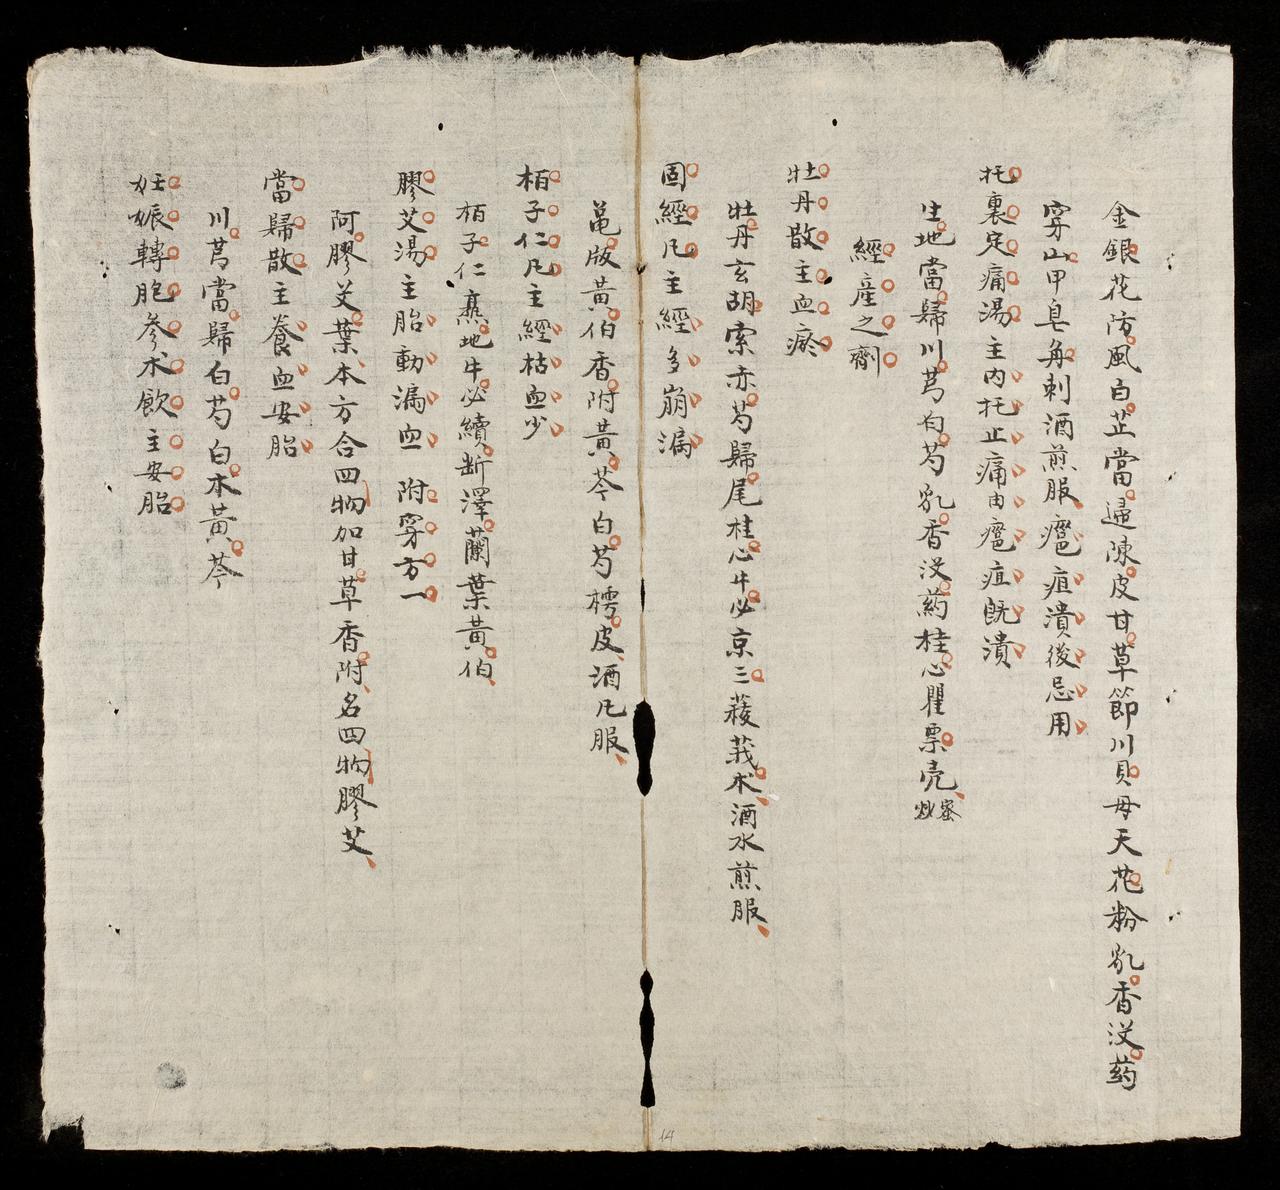 金銀花防風白芷當歸陳皮甘草節川貝母天花粉乳香沒药
穿山甲皂角刺酒煎服癰疽潰後忌用
托裏定痛湯主內托止痛由癰疽既潰
生地當歸川芎白芍乳香沒药桂心瞿票壳蜜炒
經產之劑
牡丹散主血瘀
牡丹玄胡索赤芍歸尾桂心牛必京三蔆莪朮酒水煎服
固經凡主經多崩漏
黽版黃伯香附黃芩白芍樗皮酒凡服
栢子仁凡主經枯血少
栢子仁熟地牛必續断澤蘭葉黃伯
膠艾湯主胎動漏血 附穿方一
阿膠艾葉本方合四物加甘草香附名四物膠艾
當歸散主養血安胎
川芎當歸白芍白朮黃芩
妊娠轉胞參朮飲主安胎
14